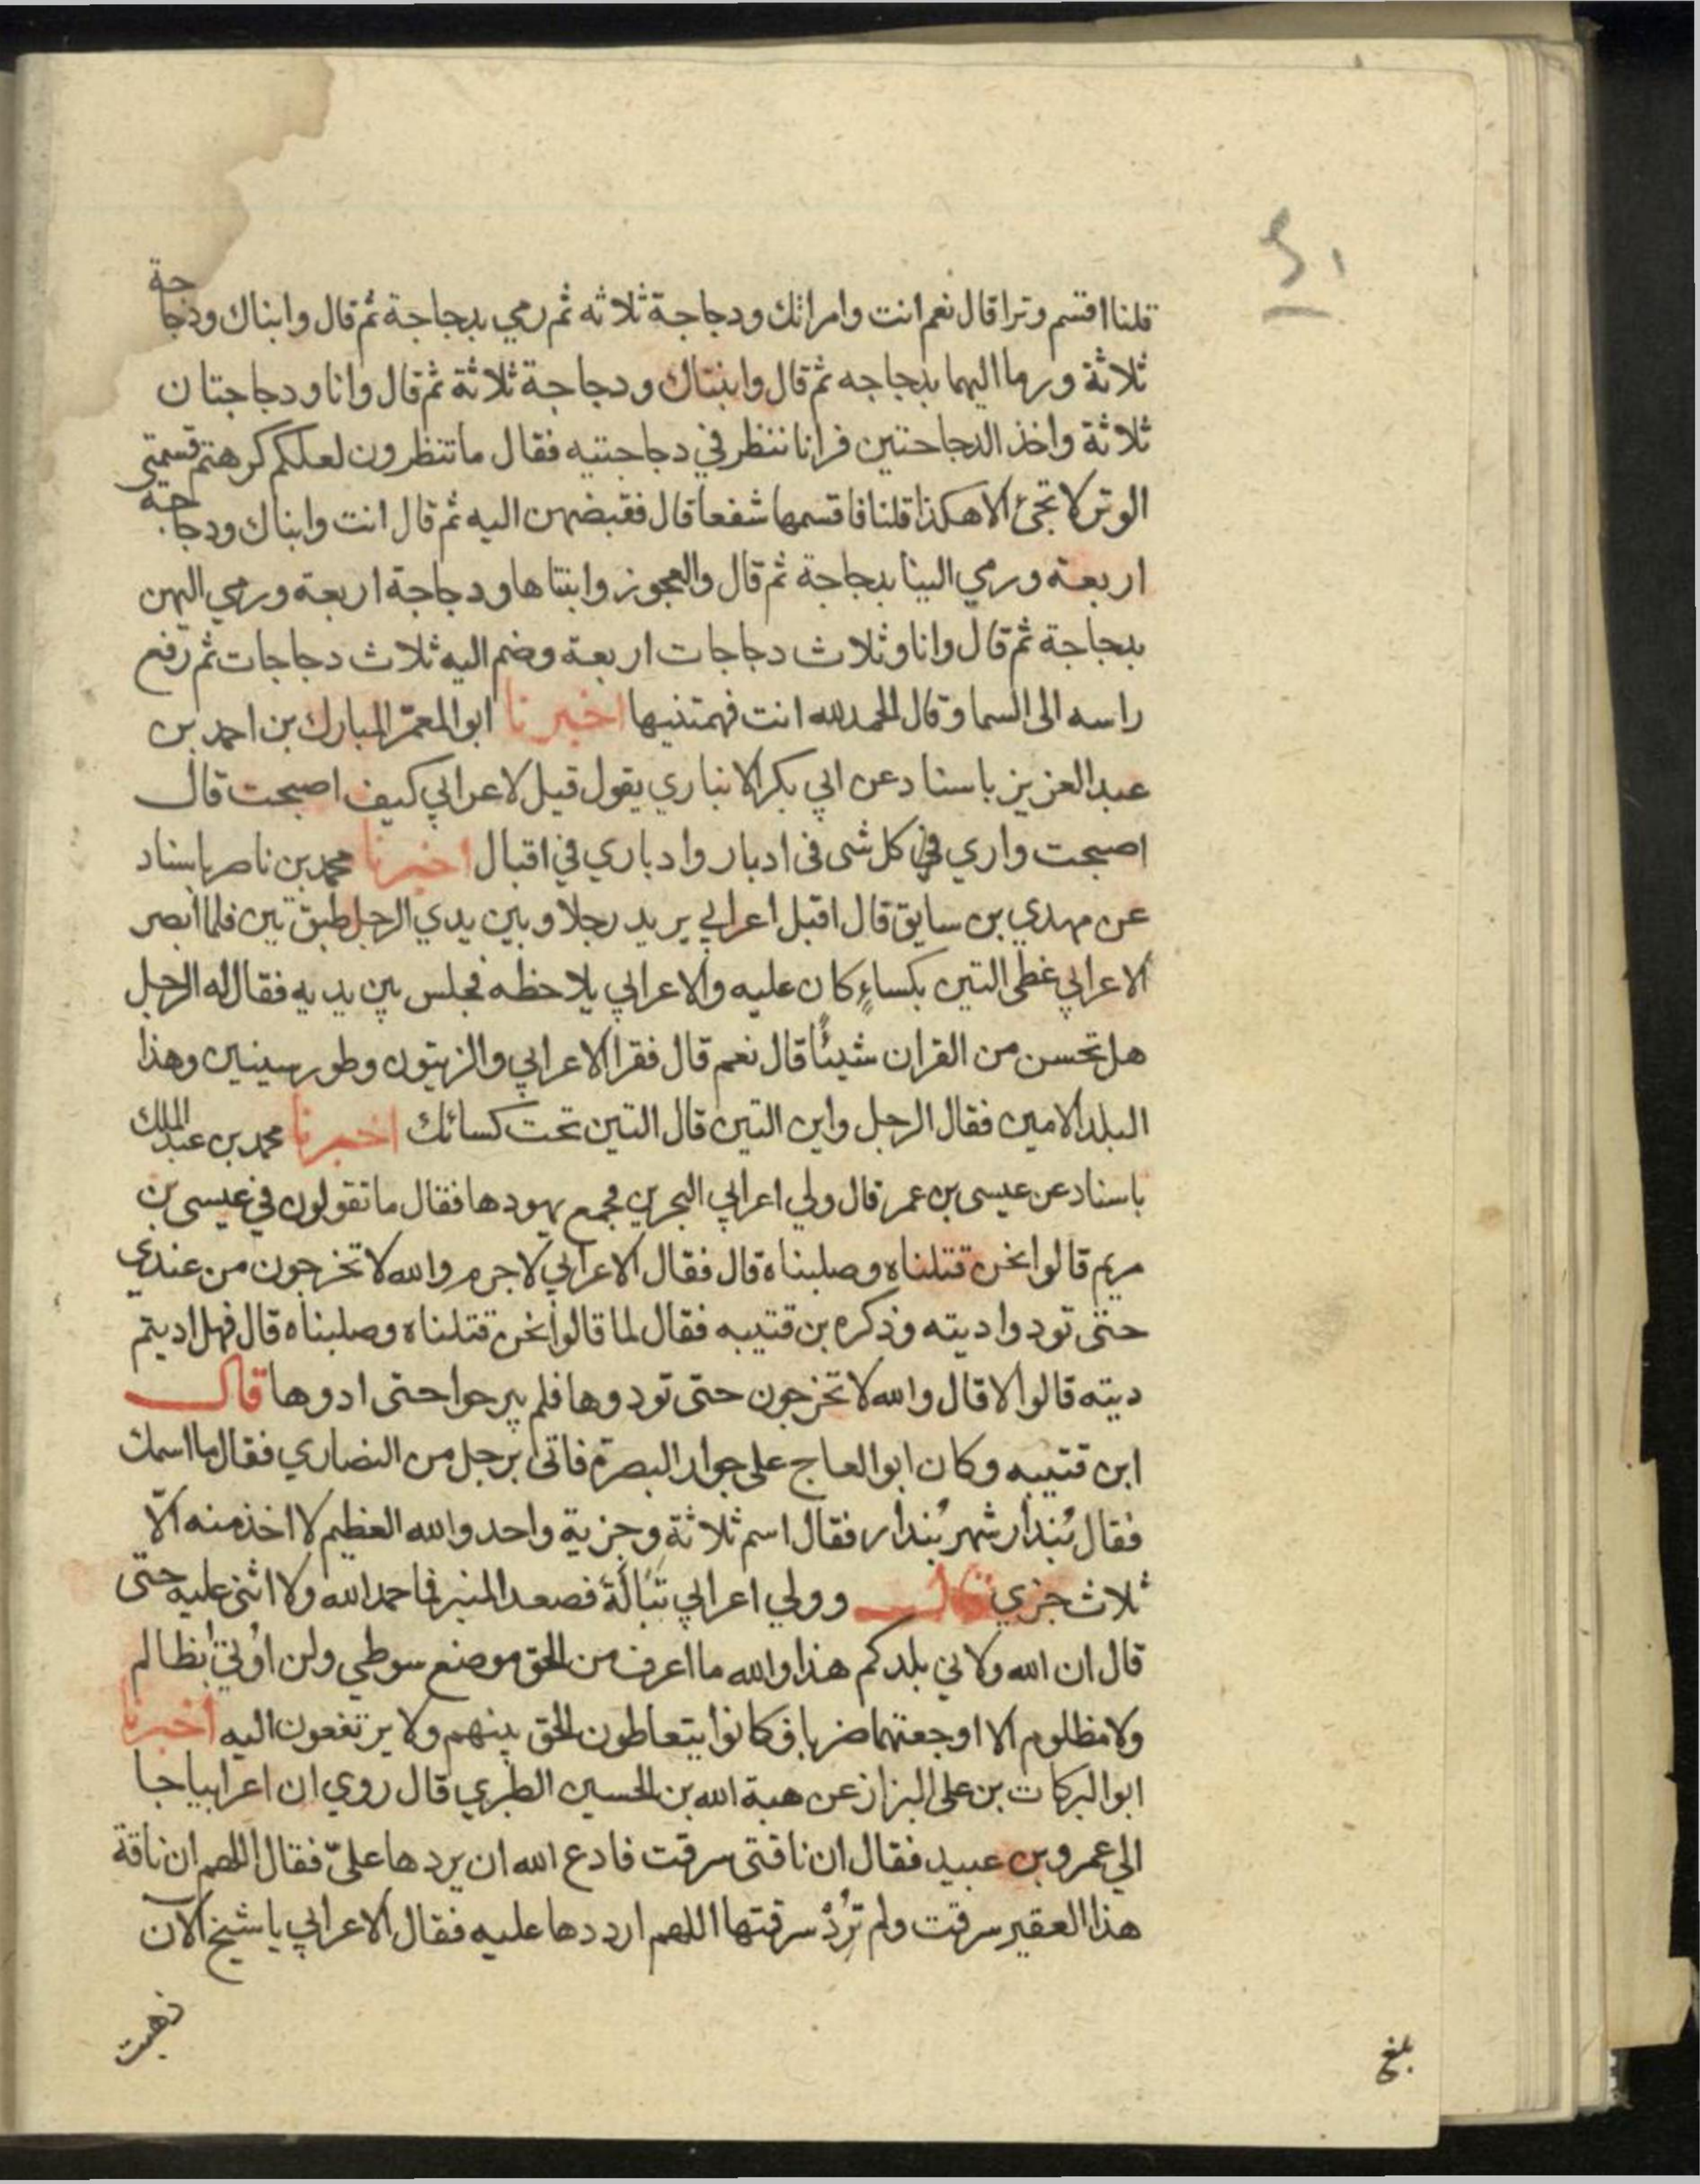 ٤١
قلنا اقسم وترا قال نعم انت وامراتك ودجاجة ثلاثه ثم رمي بدجاجة ثم قال وابناك ودجاجة
ثلاثة ورما اليهما بدجاجه ثم قال وابنتاك ودجاجة ثلاثة ثم قال وانا ودجاجتان
ثلاثة واخذ الدجاجتين فرانا ننظر في دجاجتيه فقال ما تنظرون لعلكم كرهتم قسمتي
الوتر لا تجئ الا هكذا قلنا فاقسمها شفعا قال فقبضهن اليه ثم قال انت وابناك ودجاجة
اربعة ورمي الينا بدجاجة ثم قال والعجوز وابنتاها ودجاجة اربعة ورمي اليهن
بدجاجة ثم قال وانا وثلاث دجاجات اربعة وضم اليه ثلاث دجاجات ثم رفع
راسه الى السما وقال الحمد لله انت فهمتنيها اخبرنا ابو المعمّر المبارك بن احمد بن
عبد العزيز باسناد عن ابي بكر الانباري يقول قيل لاعرابي كيف اصبحت قال
اصبحت واري في كل شى فى ادبار وادباري في اقبال اخبرنا محمد بن ناصر باسناد
عن مهدي بن سايق قال اقبل اعرابي يريد رجلا وبين يدي الرجل طبق تين فلما ابصر
الاعرابي غطى التين بكساءٍ كان عليه والاعرابي يلاحظه فجلس بين يديه فقال له الرجل
هل تحسن من القران شيئًا قال نعم قال فقرا الاعرابي والزيتون وطور سينين وهذا
البلد الامين فقال الرجل واين التين قال التين تحت كسائك اخبرنا محمد بن عبد الملك
باسناد عن عيسى بن عمر قال ولي اعرابي البحرين فجمع يهودها فقال ما تقولون في عيسى بن
مريم قالوا نحن قتلناه وصلبناه قال فقال الاعرابي لا جرم والله لا تخرجون من عندي
حتى تودوا ديته وذكره بن قتيبه فقال لما قالوا نحن قتلناه وصلبناه قال فهل اديتم
ديته قالوا لا قال والله لا تخرجون حتى تودوها فلم يبرحوا حتى ادوها قال
ابن قتيبه وكان ابو العاج على جوار البصرة فاتى برجل من النصاري فقال ما اسمك
فقال بُندار شهر بُندار فقال اسم ثلاثة وجزية واحد والله العظيم لا اخذ منه الّا
ثلاث جزي قال وولي اعرابي تَبَالَةَ فصعد المنبر فما حمد الله ولا اثنى عليه حتى
قال ان الله ولاني بلدكم هذا والله ما اعرف من الحق موضع سوطي ولن اُوتى بظالم
ولا مظلوم الا اوجعتهما ضربا فكانوا يتعاطون الحق بينهم ولا يرتفعون اليه اخبرنا
ابو البركات بن على البزاز عن هبة الله بن الحسين الطبري قال روي ان اعرابيا جا
الي عمرو بن عبيد فقال ان ناقتى سرقت فادع الله ان يردها علىّ فقال اللهم ان ناقة
هذا العقير سرقت ولم تُرِدْ سرقتها اللهم ارددها عليه فقال الاعرابي يا شيخ الآن
ذهبت
بلغ